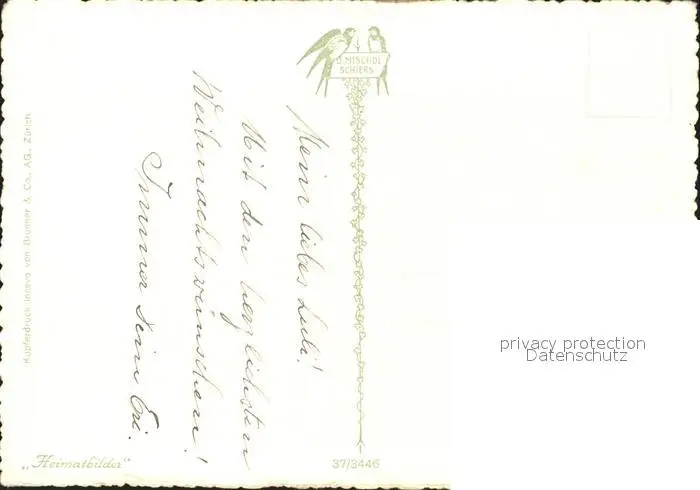 D. MISCHOL
SCHIERS
Mein liebes Luli!
Mit den herzlichsten
Weihnachtswünschen!
Immer Dein Eri.
Kupferdruck Intava von Brunner & Co. AG., Zürich
„Heimatbilder"
37/3446
privacy protection
Datenschutz